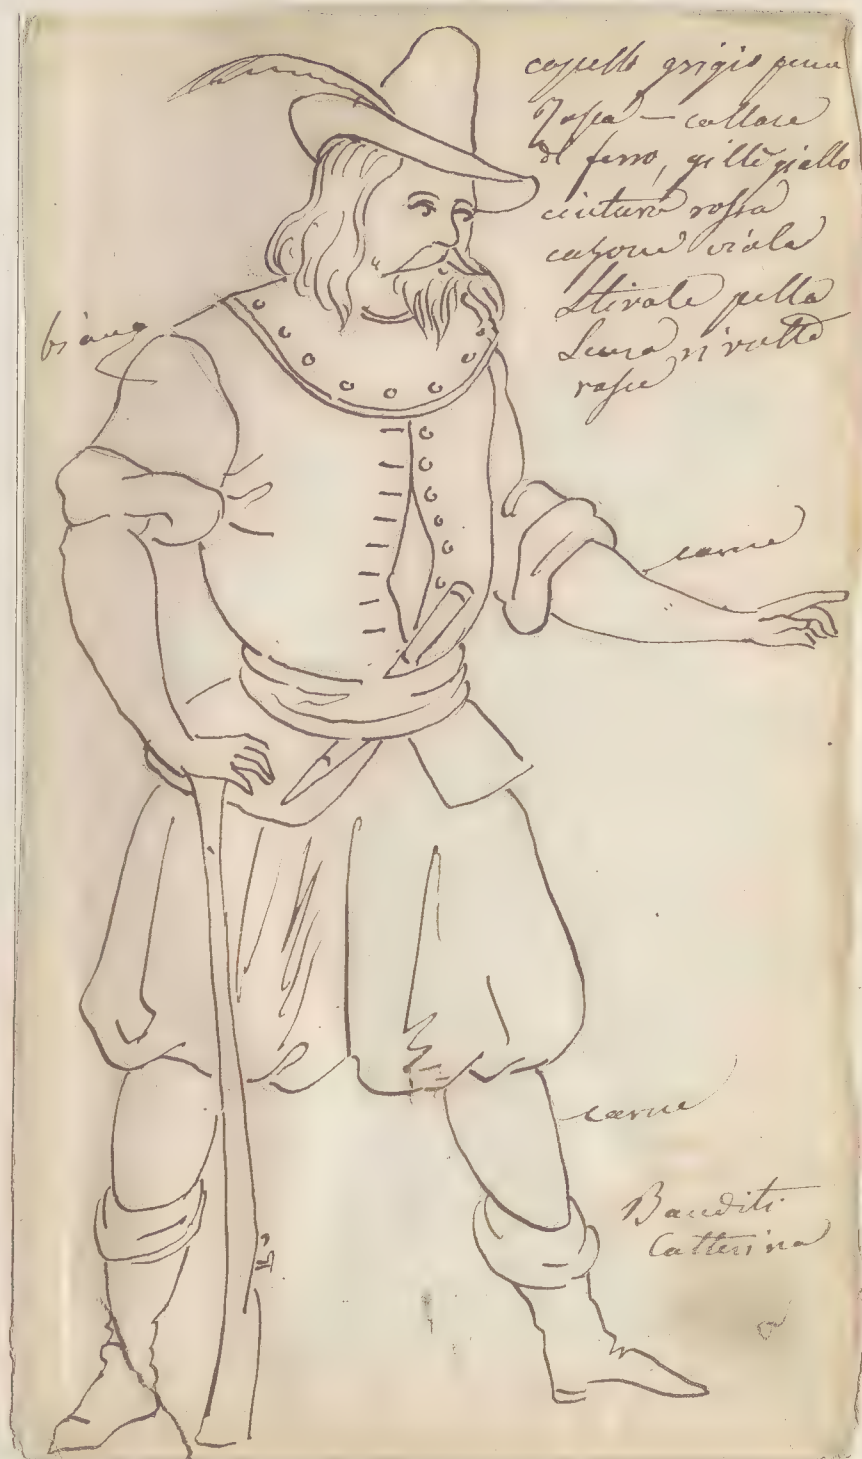 capello grigio pena
Rossa – collare
di ferro, gille giallo
cintura rossa
calzone viola
Stivale pella
scura rivolte
rosse
bianco
carne
carne
Banditi
Catterina